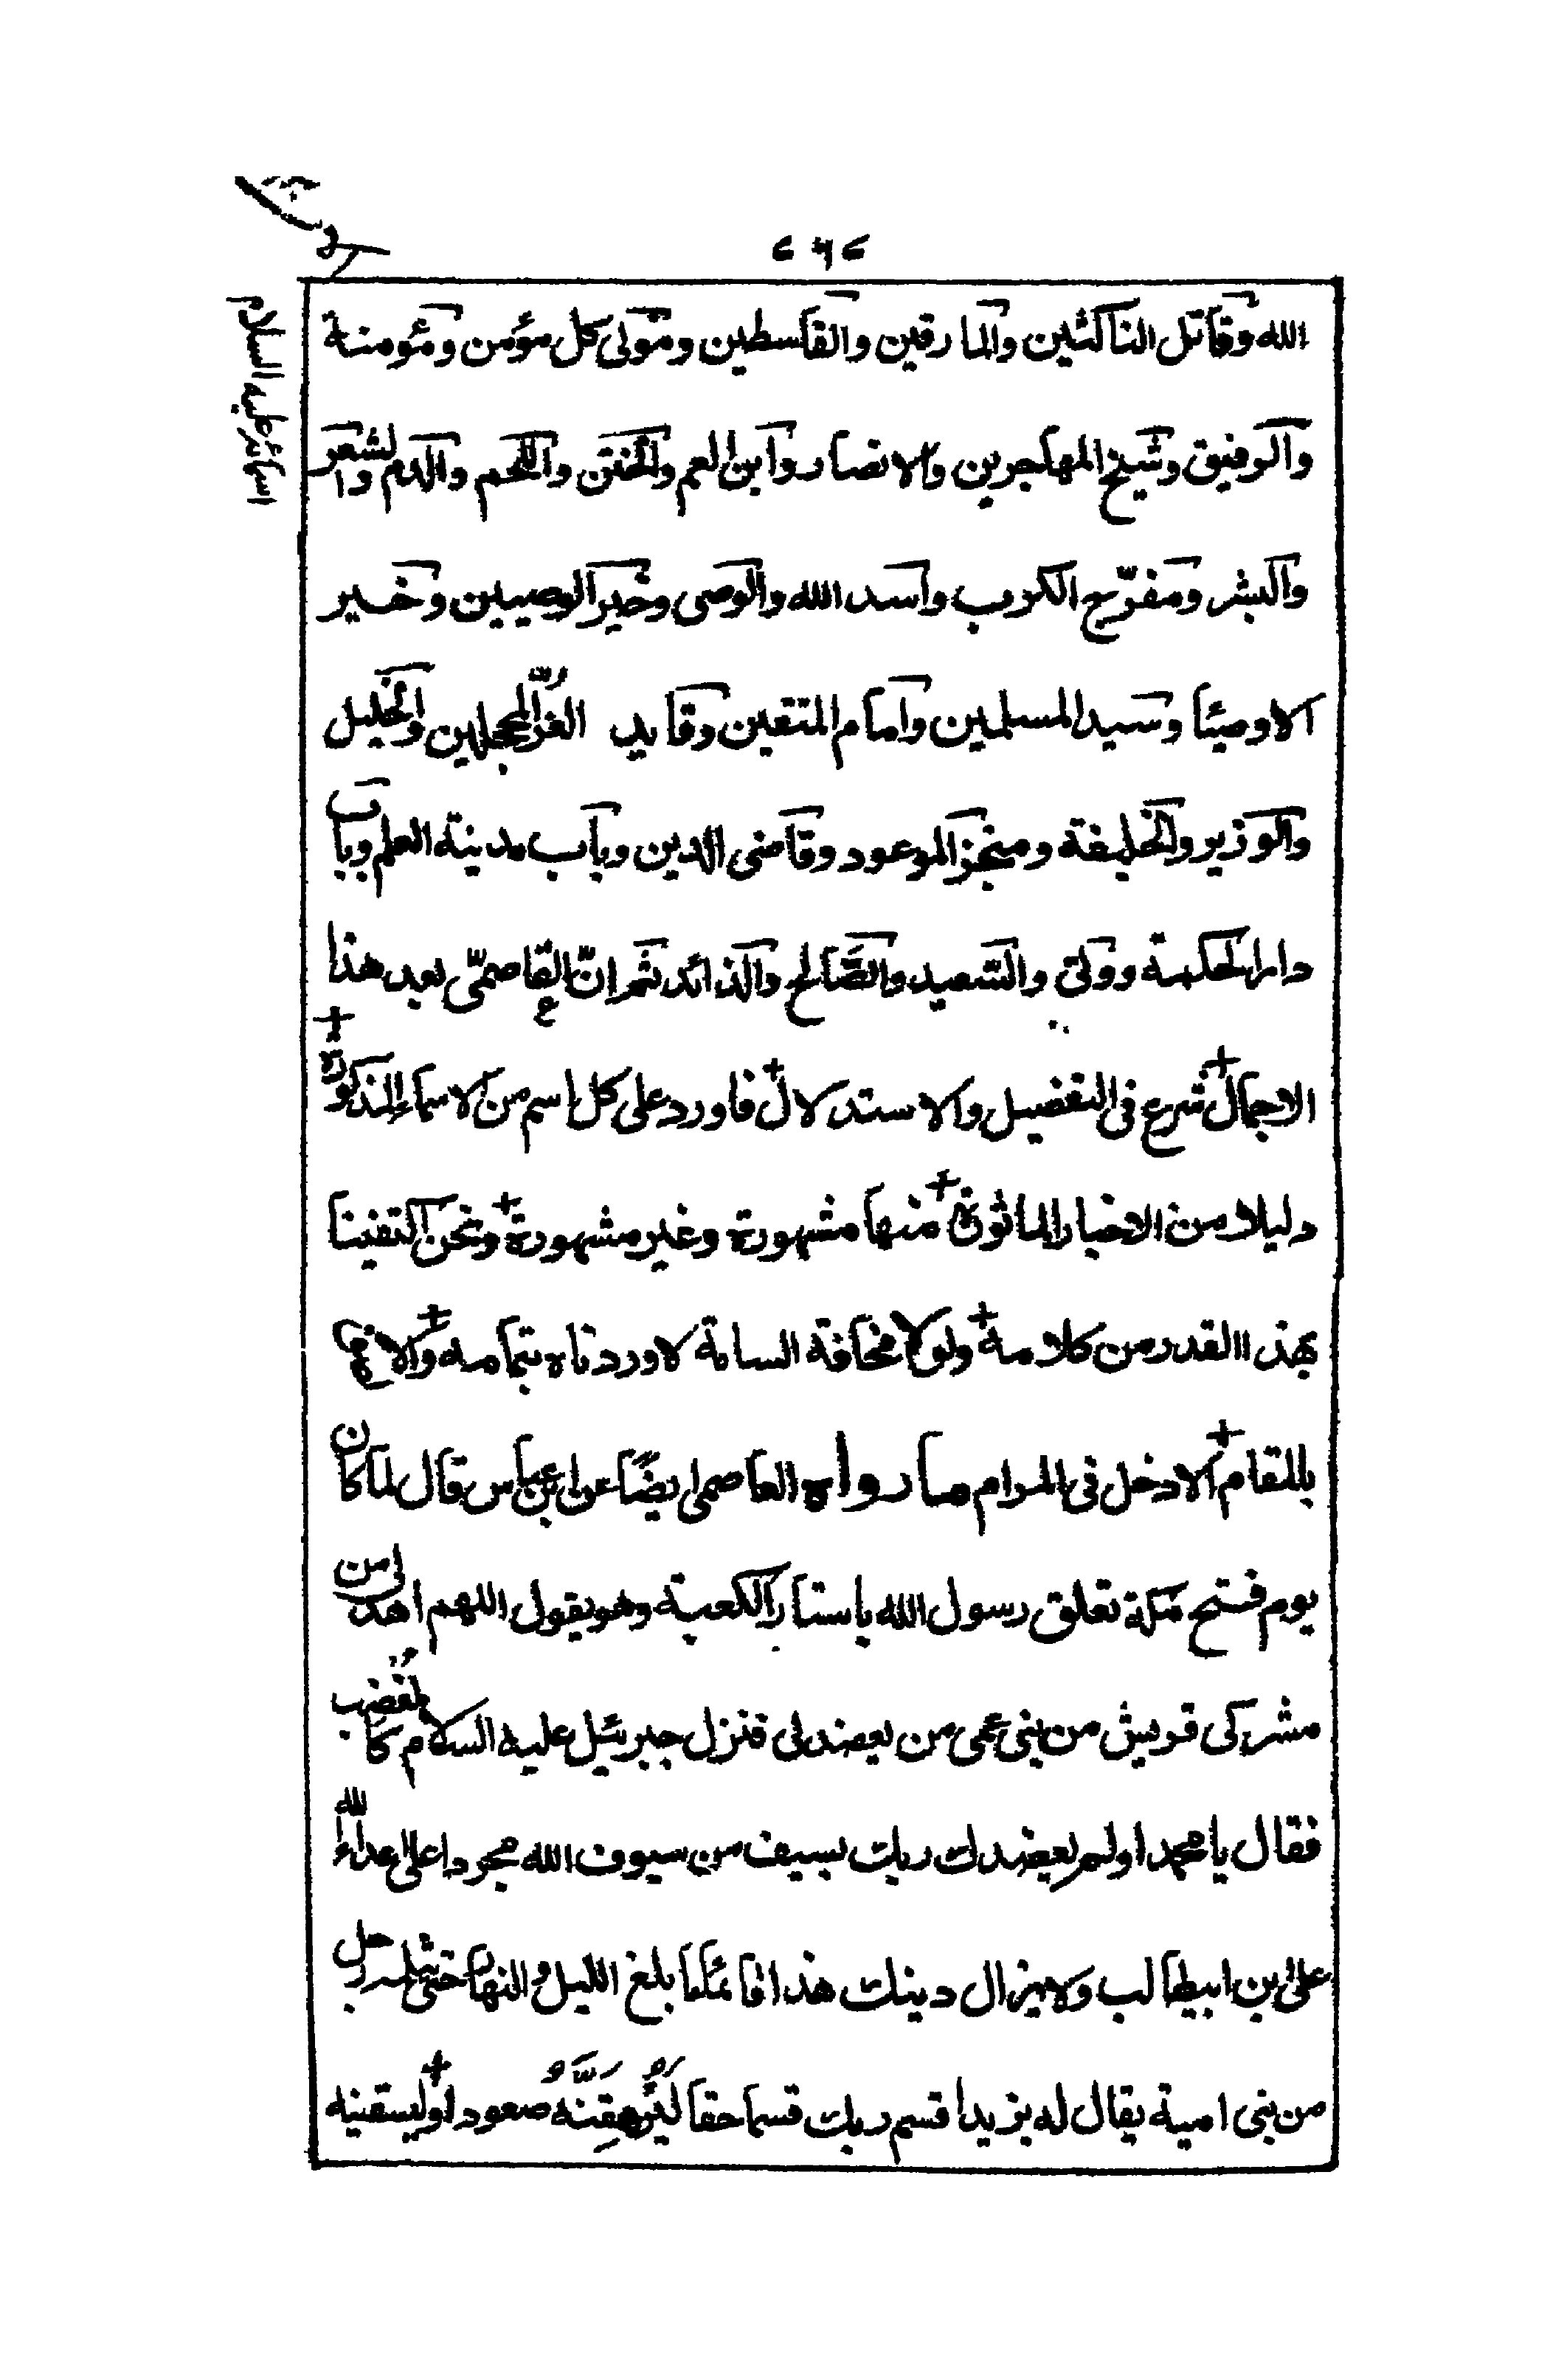 ٢٦٢
الله وقاتل الناكثين والمارقين والقاسطين ومولى كل مؤمن ومؤمنة
والرفيق وشيخ المهاجرين والانصار وابن العم والختن واللحم والدم والشعر
والبشر ومفرّج الكرب واسد الله والوصى وخير الوصيين وخير
الاوصيٓا وسيد المسلمين وامام المتقين وقايد الغُرِّ المحجلين والخليل
والوزير والخليفة ومنجز الموعود وقاضى الدين وباب مدينة العلم وباب
دار الحكمة وولىّ والسّعيد والصَّالح والذائد ثم انّ القاصمىّ بعد هذا
الاجمال شرع فى التفضيل والاستدلال فاورد على كل اسم من الاسماء المذكورة
دليلا من الاخبار الماثورة منها مشهورة وغير مشهورة ونحن اكتفينا
بهذا القدر من كلامه ولولا مخافة السامة لاوردناه بتمامه والانجح
بالمقام الادخل فى المرام ما رواه العاصمى ايضًا عن ابن عباس قال لما كان
يوم فتح مكة تعلق رسول الله باستار الكعبة وهو يقول اللهم اهد لى من
مشركى قريش من بنى عمى من يعضدلى فنزل جبرئيل عليه السلام كالمُغْضِب
فقال يا محمد اولم يعضدك ربك بسيف من سيوف الله مجردا على اعداء الله
علىّ بن ابيطالب ولا يزال دينك هذا قائما ما بلغ الليل والنهار حتى يثلمه رجل
من بنى امية يقال له يزيد اقسم ربك قسما حقا لَيُرْهِقَنَّهُ صعودا وليسقينه
اسمائه عليه السلام